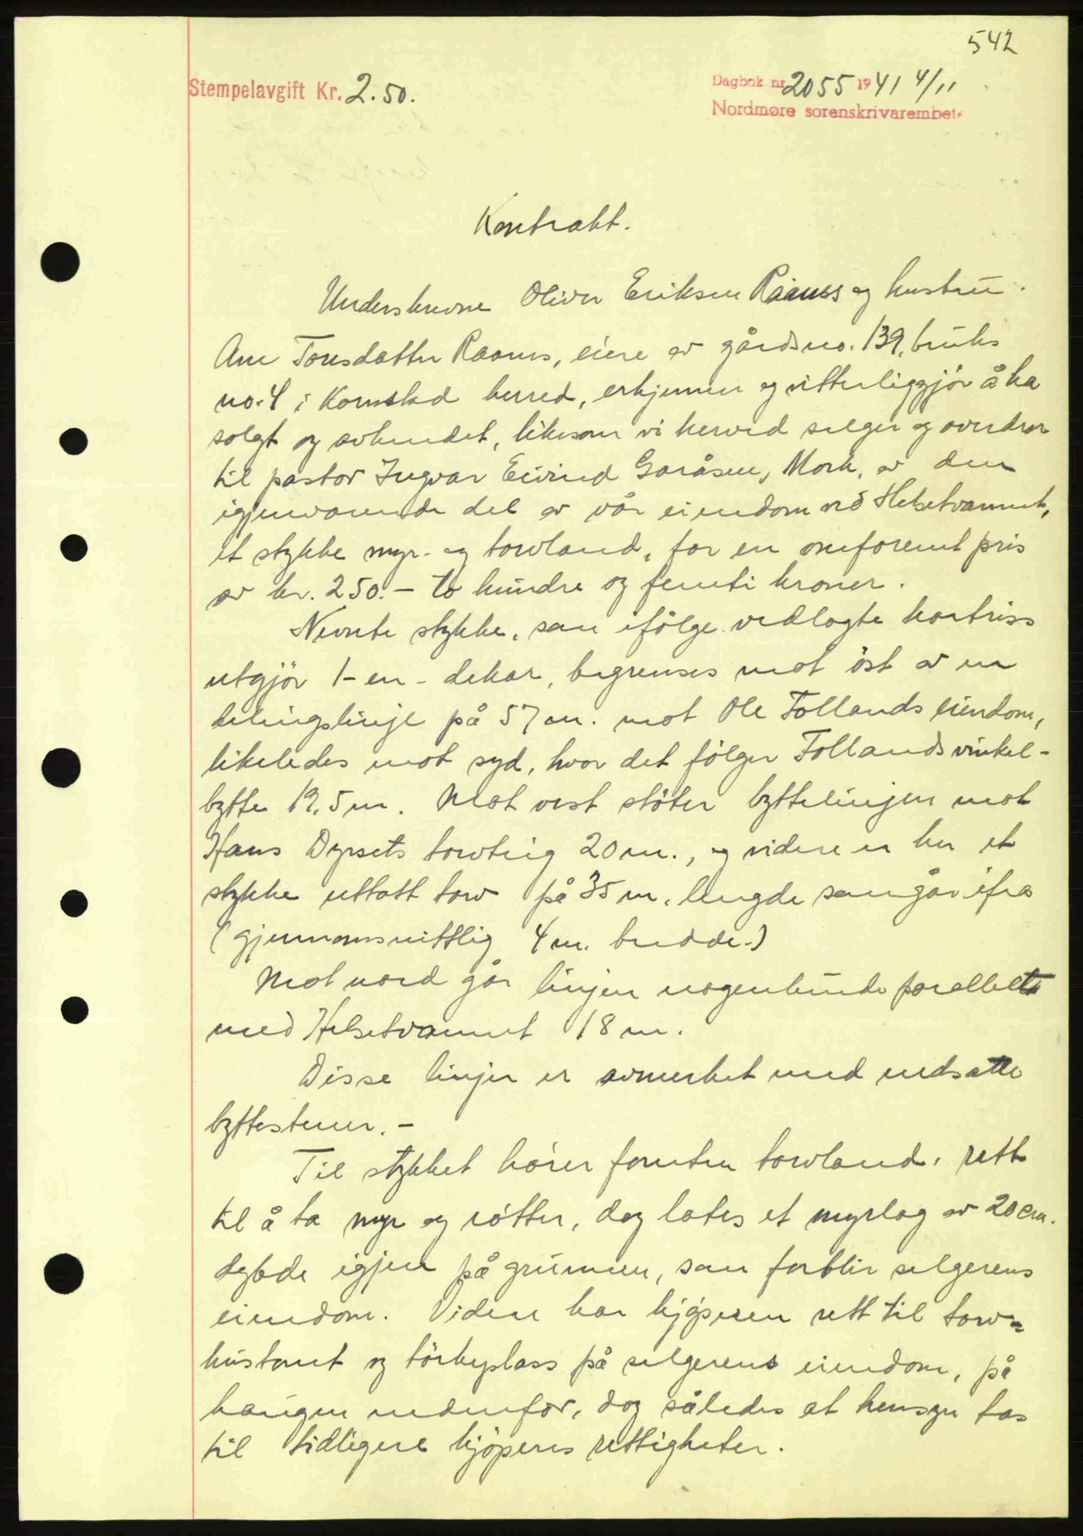 542
Stempelavgift Kr. 2.50.
Dagbok nr. 2055 1941 4/11
Nordmøre sorenskrivarembete
Kontrakt.
Underskrevne Oliver Eriksen Raanes og hustru
Ane Tomsdatter Raanes, eiere av gårdsno. 139, bruks
no. 4 i Kornstad herred, erkjenner og vitterliggjör å ha
solgt og avhendet, liksom vi herved selger og overdrar
til pastor Ingvar Eivind Garåsen, Mork, av den
igjenværende del av vår eiendom ved Helsetvannet,
et stykke myr- og torvland, for en omforenet pris
av kr. 250.- to hundre og femti kroner.
Nevnte stykke, som ifölge vedlagte kartriss
utgjör 1- en - dekar, begrenses mot öst av en
delingslinje på 57 m. mot Ole Follands eiendom,
likeledes mot syd, hvor det fölger Follands vinkel-
bytte 19,5 m. Mot vest stöter byttelinjen mot
Hans Dyrsets torvteig 20 m., og videre er her et
stykke uttatt torv på 35 m. lengde som går ifra
(gjennomsnittlig 4 m. bredde.)
Mot nord går linjen nogenlunde parallelt
med Helsetvannet 18 m.
Disse linjer er avmerket med nedsatte
byttestener. -
Til stykket hörer foruten torvland, rett
til å ta myr og rötter, dog lates et myrlag av 20 cm.
dybde igjen på grunnen, som forblir selgerens
eiendom. Videre har kjöperen rett til torv-
hustomt og törkeplass på selgerens eiendom, på
haugen nedenfor, dog således at hensyn tas
til tidligere kjöperes rettigheter.